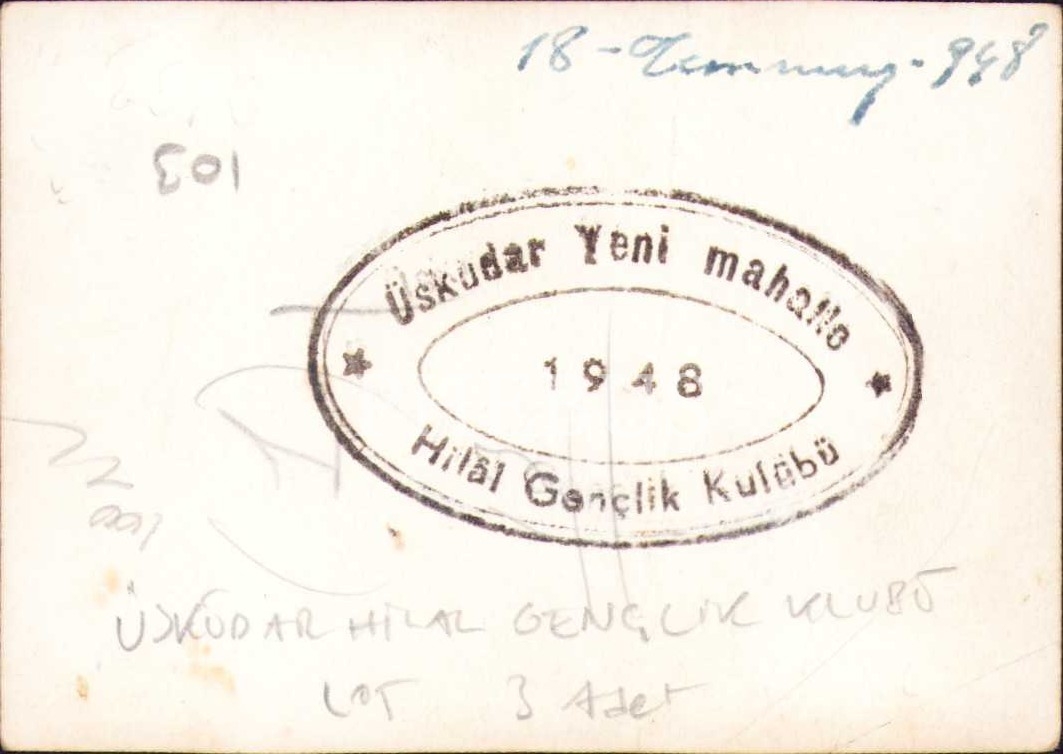 18-Temmuz-948
103
Üsküdar Yeni mahalle
1948
Hilâl Gençlik Kulübü
ÜSKÜDAR HİLAL GENÇLİK KLUBÜ
LOT 3 Adet